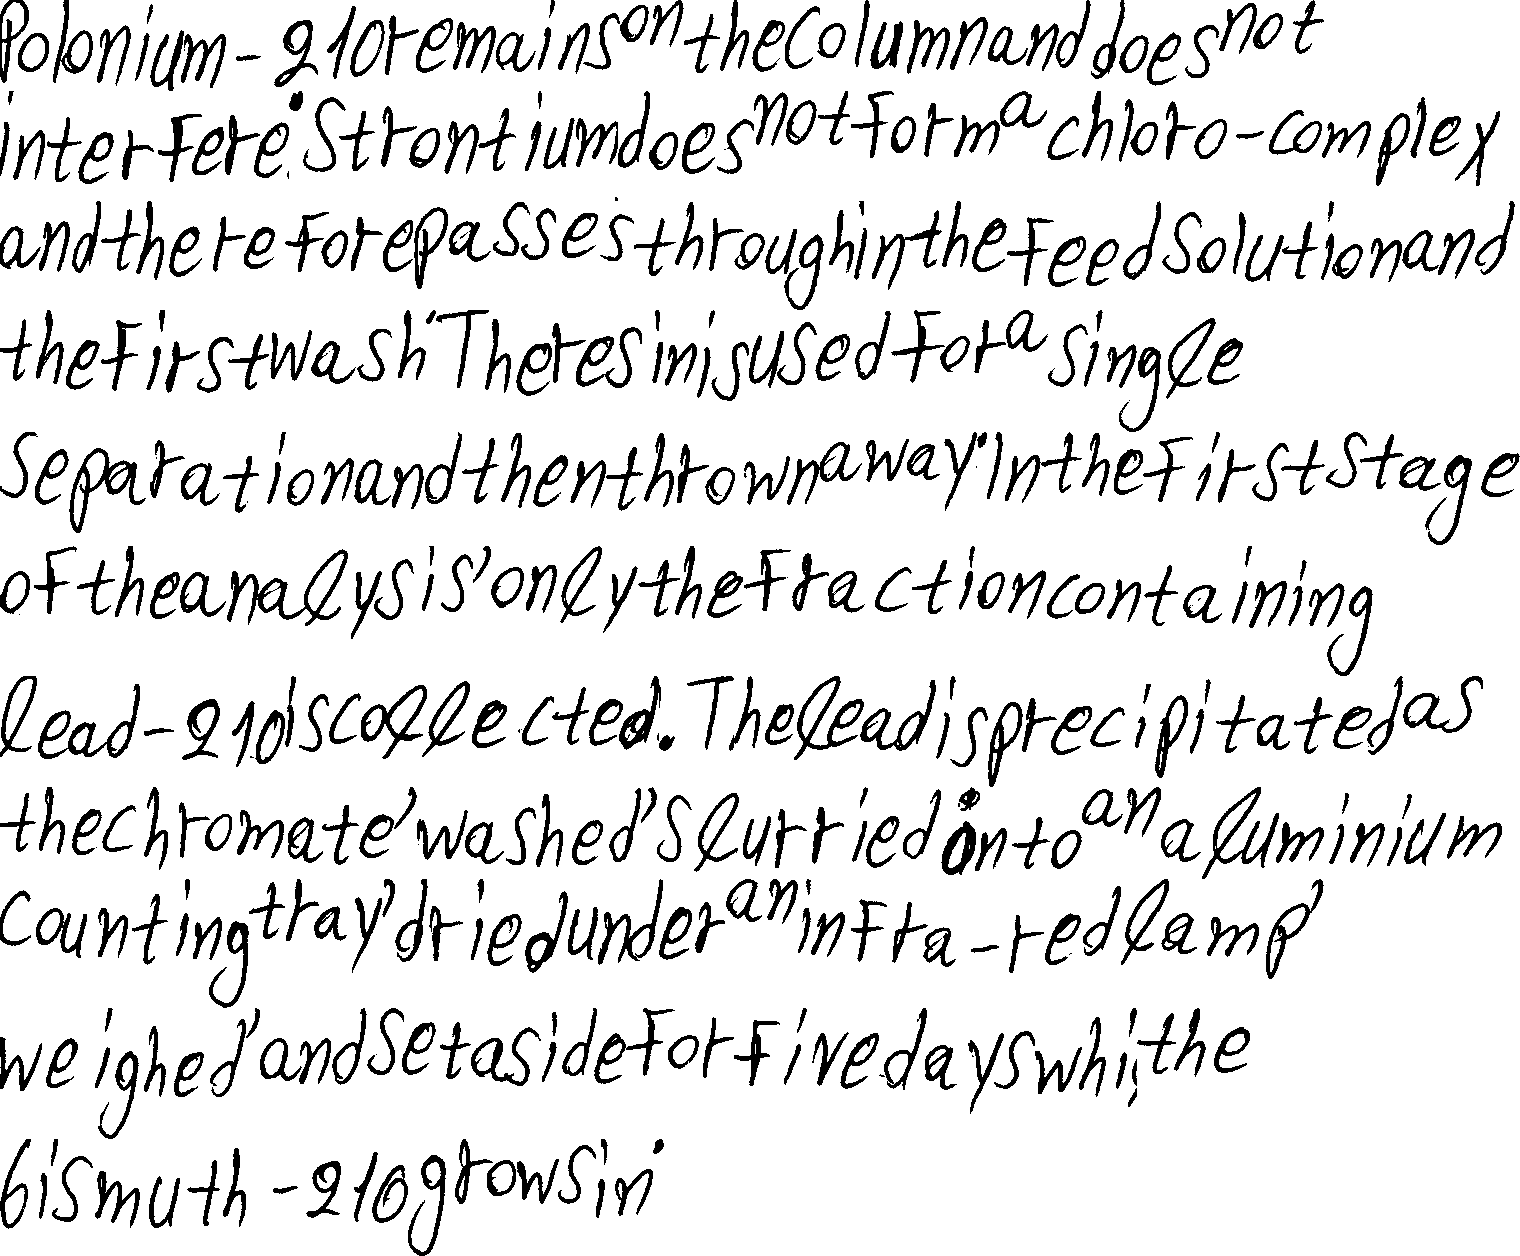 Polonium-210 remains on the column and does not
interfere. Strontium does not form a chloro-complex
and therefore passes through in the feed solution and
the first wash. The resin is used for a single
separation and then thrown away. In the first stage
of the analysis, only the fraction containing
lead-210 is collected. The lead is precipitated as
the chromate, washed, slurried onto an aluminium
counting tray, dried under an infra-red lamp,
weighed, and set aside for five days whi, the
bismuth-210 grows in.